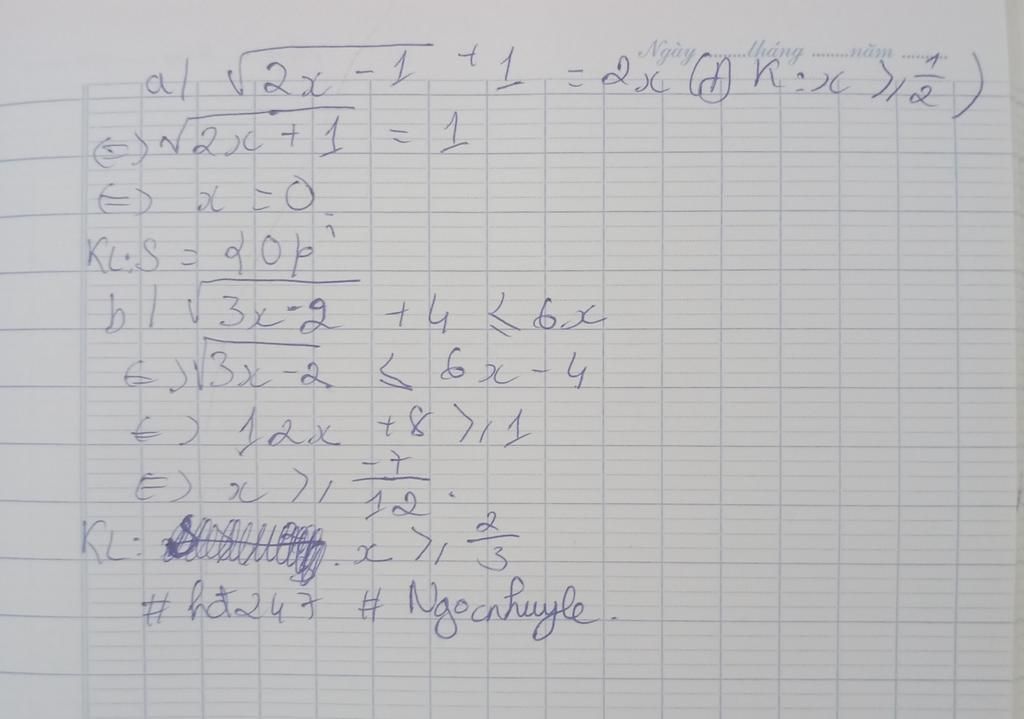 Ngày ........tháng ........năm ........
a/ √(2x - 1) + 1 = 2x (ĐK: x ≥ 1/2)
⇔ √(2x + 1) = 1
⇔ x = 0
KL: S = {0};
b/ √(3x - 2) + 4 ≤ 6x
⇔ √(3x - 2) ≤ 6x - 4
⇔ 12x + 8 ≥ 1
⇔ x ≥ -7/12.
KL: x ≥ 2/3
# hđ247 # Ngocnhuyle.